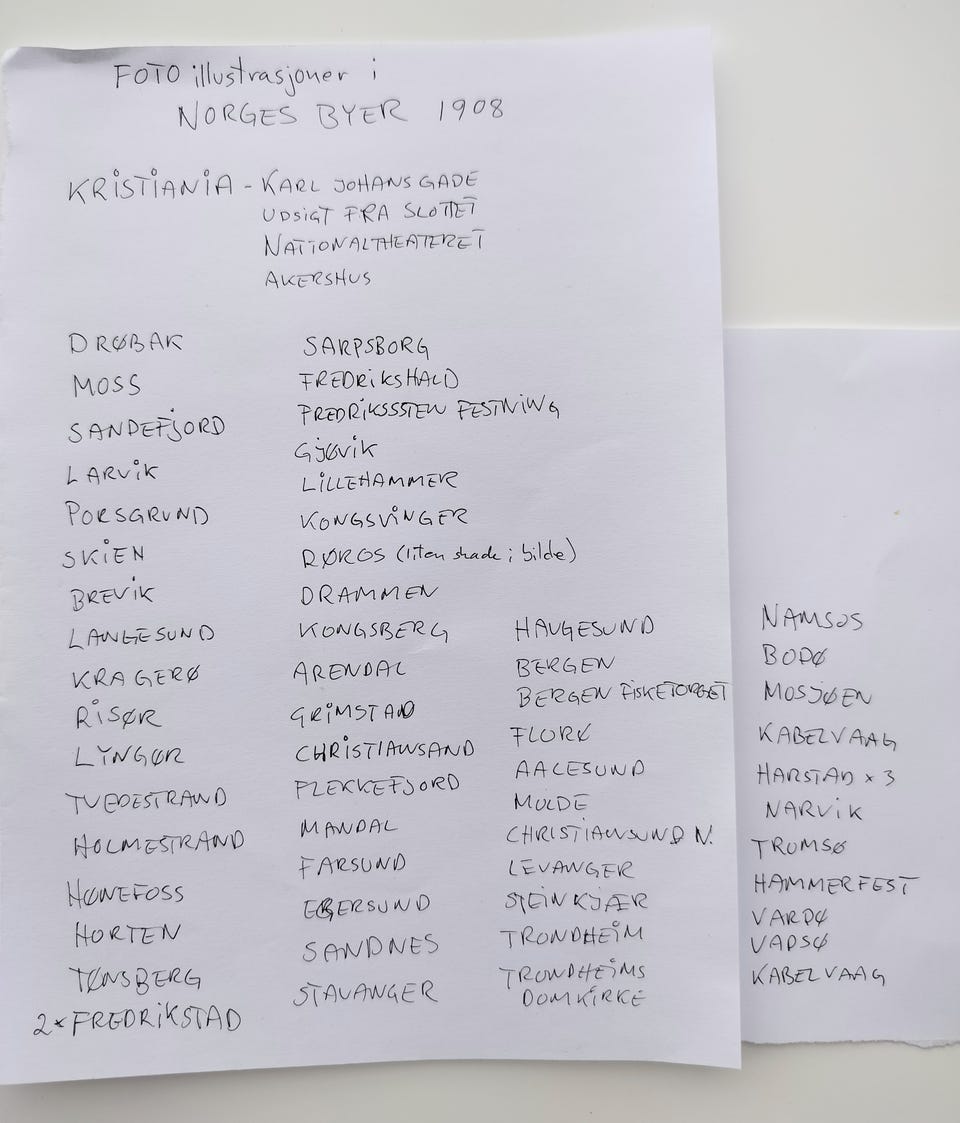 FOTO illustrasjoner i
NORGES BYER 1908
KRISTIANIA - KARL JOHANS GADE
UDSIGT FRA SLOTTET
NATIONALTHEATERET
AKERSHUS
DRØBAK
MOSS
SANDEFJORD
LARVIK
PORSGRUND
SKIEN
BREVIK
LANGESUND
KRAGERØ
RISØR
LYNGØR
TVEDESTRAND
HOLMESTRAND
HØNEFOSS
HORTEN
TØNSBERG
2x FREDRIKSTAD
SARPSBORG
FREDRIKSHALD
FREDRIKSSTEN FESTNING
GJØVIK
LILLEHAMMER
KONGSVINGER
RØROS (liten skade i bilde)
DRAMMEN
KONGSBERG
ARENDAL
GRIMSTAD
CHRISTIANSAND
FLEKKEFJORD
MANDAL
FARSUND
EGERSUND
SANDNES
STAVANGER
HAUGESUND
BERGEN
BERGEN FISKETORGET
FLORØ
AALESUND
MOLDE
CHRISTIANSUND N.
LEVANGER
STEINKJÆR
TRONDHEIM
TRONDHEIMS
DOMKIRKE
NAMSOS
BODØ
MOSJØEN
KABELVAAG
HARSTAD x 3
NARVIK
TROMSØ
HAMMERFEST
VARDØ
VADSØ
KABELVAAG